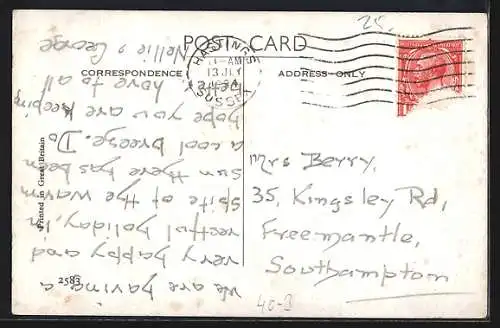 POST CARD
CORRESPONDENCE
ADDRESS ONLY
HASTINGS
11-AM
13 JLY
SUSSEX
25
Printed in Great Britain
2583
We are having a
very happy and
restful holiday, in
spite of the warm
sun there has been
a cool breeze. Do
hope you are keeping
love to all
Nellie & George
Mrs Berry,
35, Kingsley Rd,
Freemantle,
Southampton